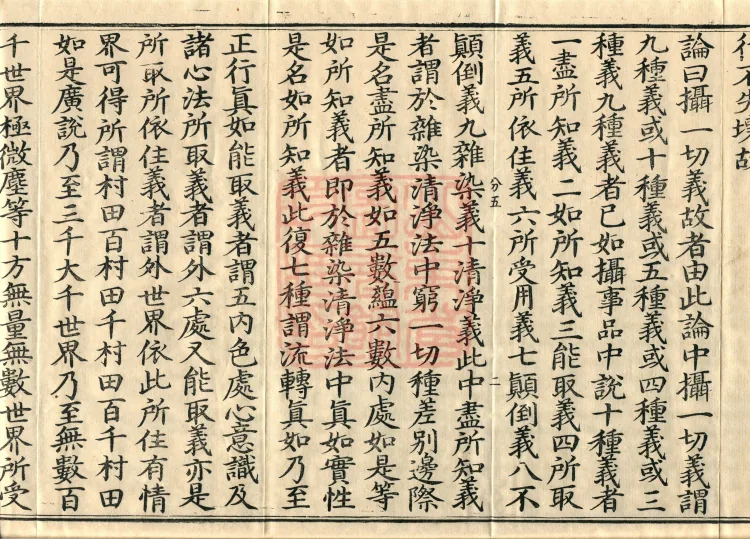 行不失壞故
論曰攝一切義故者由此論中攝一切義謂
九種義或十種義或五種義或四種義或三
種義九種義者已如攝事品中說十種義者
一盡所知義二如所知義三能取義四所取
義五所依住義六所受用義七顚倒義八不
分五 二
顚倒義九雜染義十清淨義此中盡所知義
者謂於雜染清淨法中窮一切種差別邊際
是名盡所知義如五數蘊六數內處如是等
如所知義者即於雜染清淨法中眞如實性
是名如所知義此復七種謂流轉眞如乃至
正行眞如能取義者謂五內色處心意識及
諸心法所取義者謂外六處又能取義亦是
所取所依住義者謂外世界依此所住有情
界可得所謂村田百村田千村田百千村田
如是廣說乃至三千大千世界乃至無數百
千世界極微塵等十方無量無數世界所受